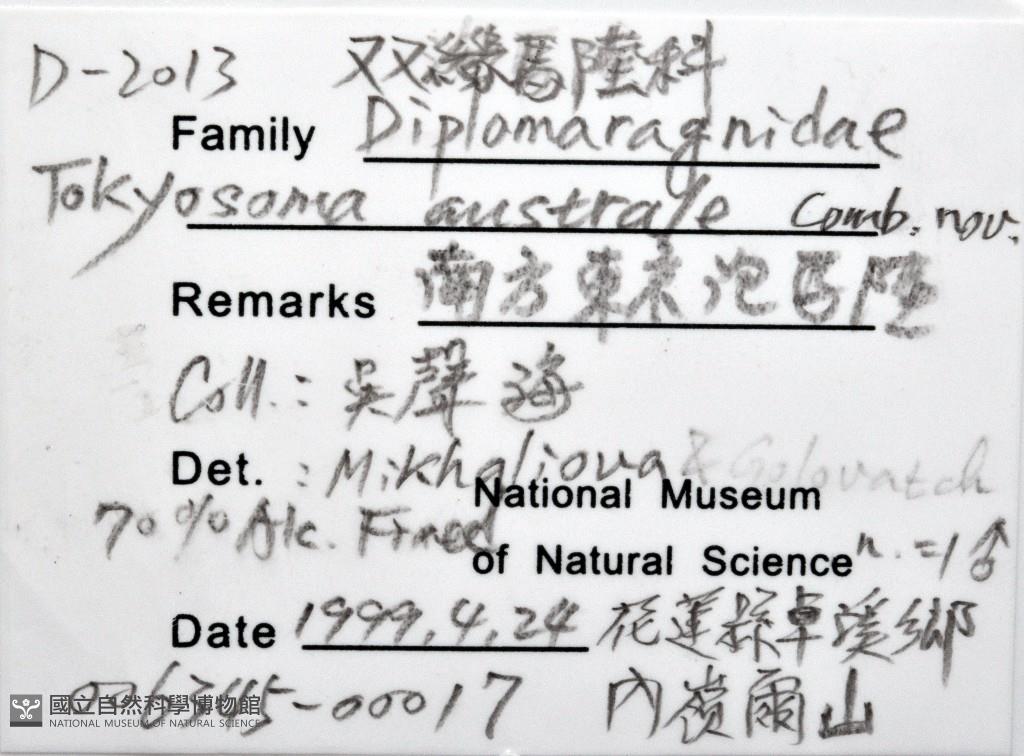 D-2013 双緣馬陸科
Family Diplomaragnidae
Tokyosoma australe Comb. nov.
Remarks 南方東京泡馬陸
Coll.: 吳聲海
Det. : Mikhaliova & Golovatch
National Museum
70% Alc. Fixed
of Natural Science n.=1♂
Date 1999.4.24 花蓮縣卓溪鄉
-00017 內嶺爾山
國立自然科學博物館
NATIONAL MUSEUM OF NATURAL SCIENCE